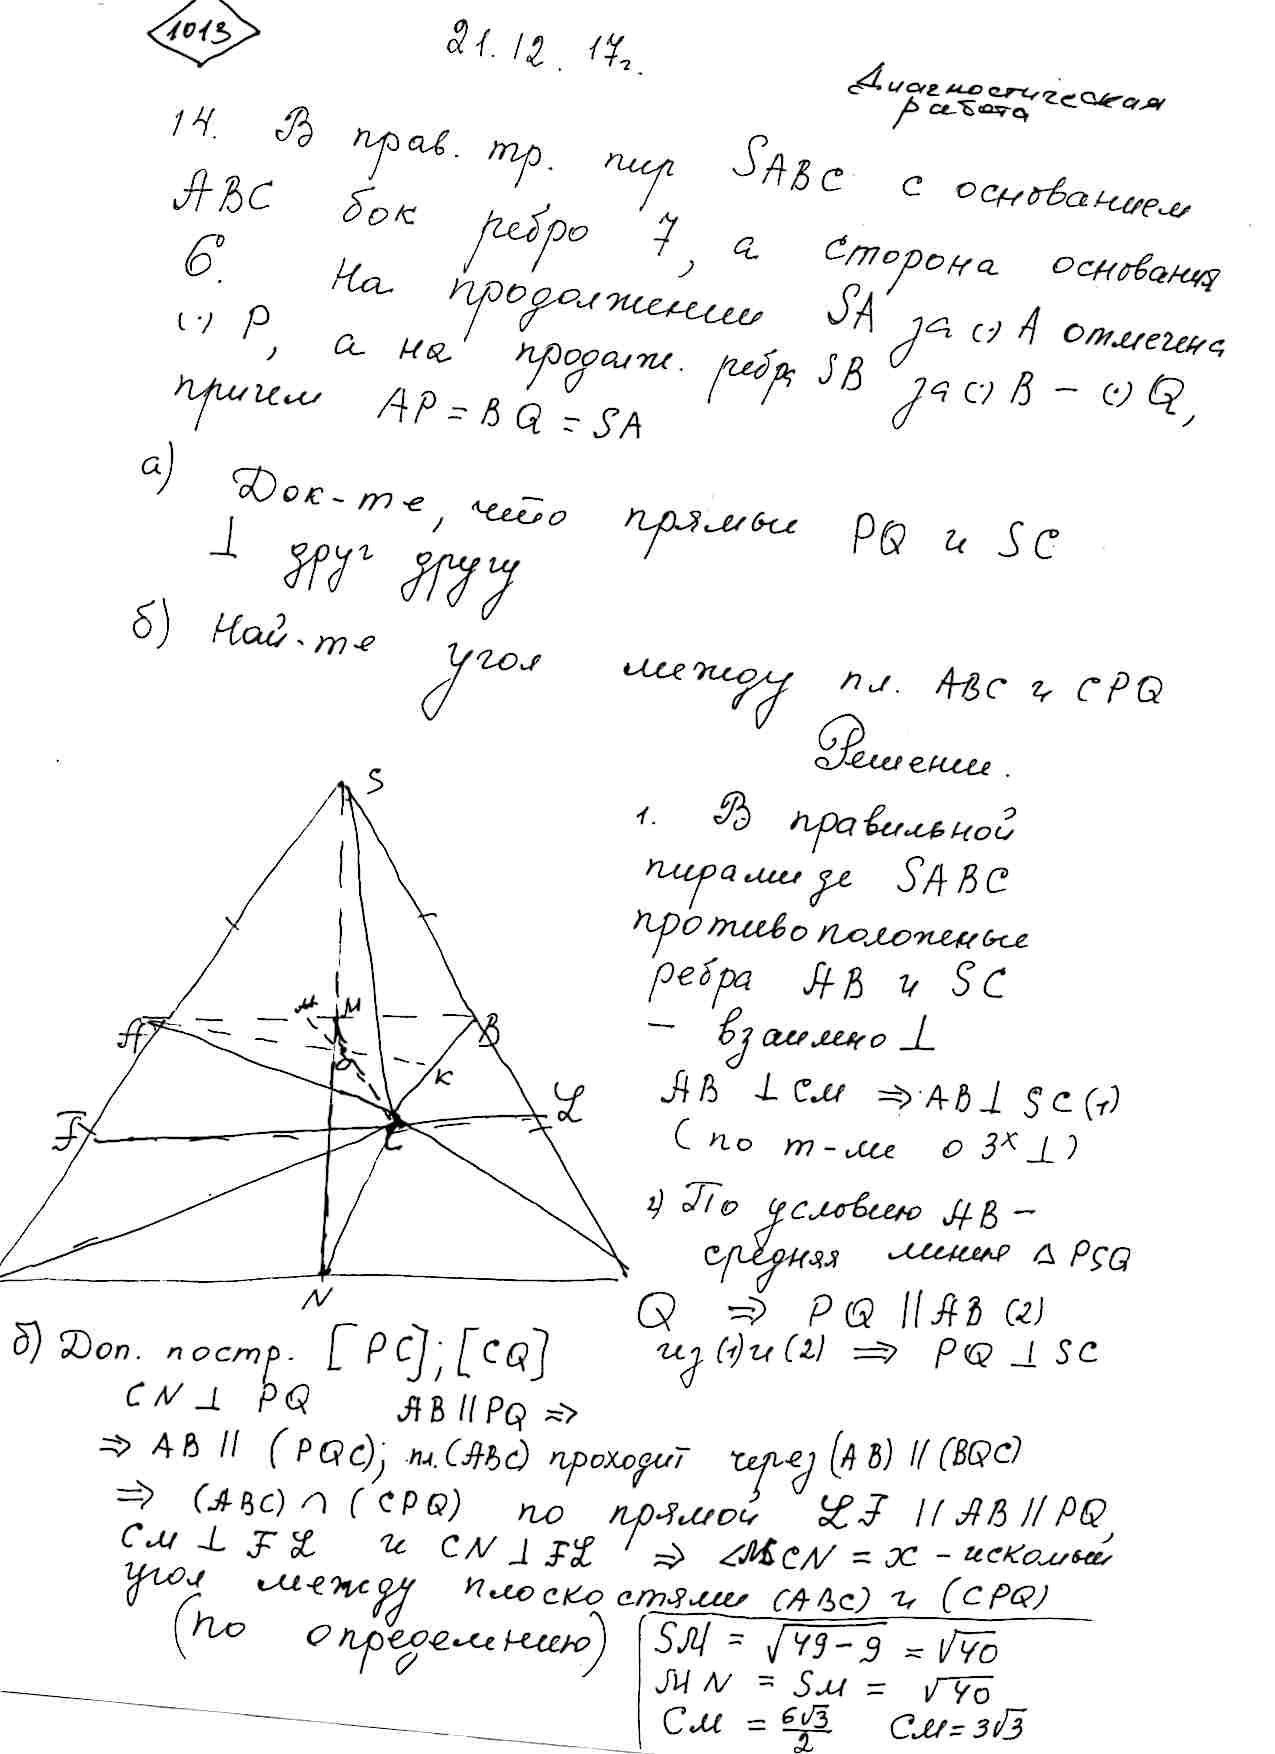 1013
21.12.17г.
Диагностическая
работа
14. В прав. тр. пир SABC с основанием
ABC бок ребро 7, а сторона основания
6. На продолжении SA за (·) A отмечена
(·) P, а на продолж. ребра SB за (·) B – (·) Q,
причем AP = BQ = SA
а) Док-те, что прямые PQ и SC
⊥ друг другу
б) Най-те угол между пл. ABC и CPQ
Решение.
1. В правильной
пирамиде SABC
противоположеные
ребра AB и SC
– взаимно ⊥
AB ⊥ CM ⇒ AB ⊥ SC (1)
(по т-ме о 3х ⊥)
2) По условию AB –
средняя линия △ PSQ
Q ⇒ PQ || AB (2)
из (1) и (2) ⇒ PQ ⊥ SC
S
A
M
B
K
F
L
C
N
б) Доп. постр. [PC]; [CQ]
CN ⊥ PQ AB || PQ ⇒
⇒ AB || (PQC); пл. (ABC) проходит через (AB) || (BQC)
⇒ (ABC) ∩ (CPQ) по прямой LF || AB || PQ,
CM ⊥ FL и CN ⊥ FL ⇒ ∠MCN = x – искомый
угол между плоскостями (ABC) и (CPQ)
(по определению)
SM = √49 – 9 = √40
MN = SM = √40
CM = 6√3/2 CM = 3√3